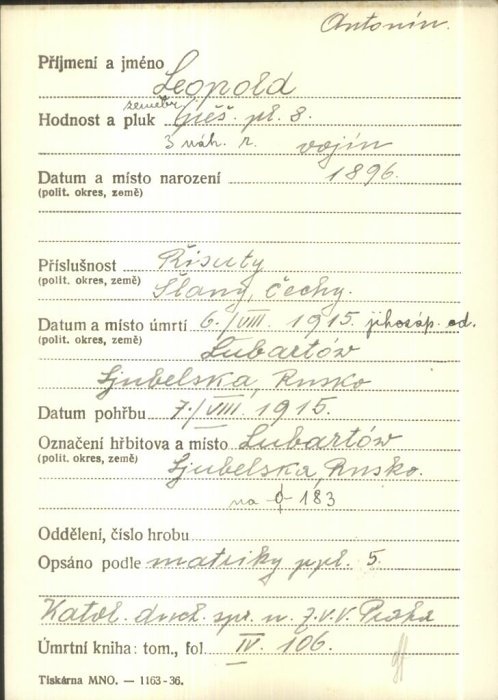 Antonín.
Příjmení a jméno Leopold
zeměbr.
Hodnost a pluk pěš. pl. 8.
3 náh. r. vojín
Datum a místo narození 1896.
(polit. okres, země)
Příslušnost Řisuty
(polit. okres, země) Slaný, Čechy.
Datum a místo úmrtí 6./VIII. 1915. jihozáp. od.
(polit. okres, země) Lubartów
Ljubelska, Rusko
Datum pohřbu 7./VIII. 1915.
Označení hřbitova a místo Lubartów
(polit. okres, země) Ljubelska, Rusko.
na 183
Oddělení, číslo hrobu
Opsáno podle matriky ppl. 5.
Katol. duch. spr. u Z.V.V. Praha
Úmrtní kniha: tom., fol. IV. 106.
Tiskárna MNO. — 1163-36.